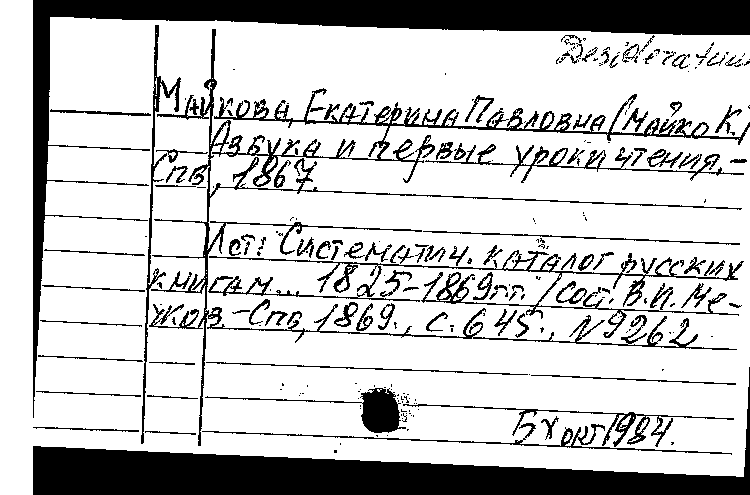 Desideratum
Майкова, Екатерина Павловна (Майко К.)
Азбука и первые уроки чтения. –
Спв, 1867.
Ист: Систематич. каталог русских
книгам... 1825-1869гг. / Сост. В.И. Ме-
жов. – Спв, 1869., с. 645., N9262
окт 1984.